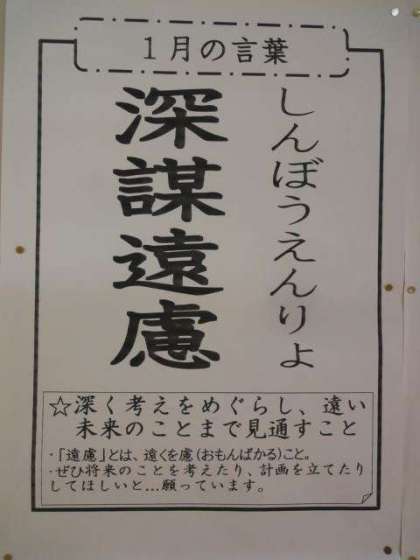 1月の言葉
しんぼうえんりょ
深謀遠慮
☆深く考えをめぐらし、遠い
未来のことまで見通すこと
・「遠慮」とは、遠くを慮(おもんばかる)こと。
・ぜひ将来のことを考えたり、計画を立てたり
してほしいと…願っています。